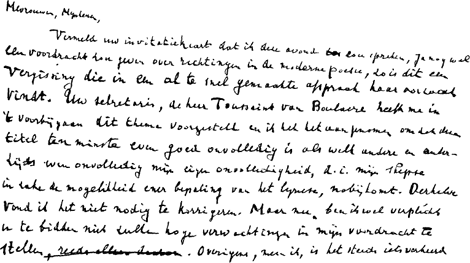 Mevrouwen, Mijnheren,
Vermeld uw invitatiekaart dat ik deze avond zou spreken, ja nog wel
een voordracht zou geven over richtingen in de moderne poëzie, zo is dit een
vergissing die in een al te snel gemaakte afspraak haar oorzaak
vindt. Uw secretaris, de heer Toussaint van Boelaere heeft me in
't voorbijgaan dit thema voorgesteld en ik heb het aangenomen omdat deze
titel ten minste even goed onvolledig is als welk andere en ander-
zijds even onvolledig mijn eigen onvolledigheid, d.i. mijn skepsis
in zake de mogelikheid ener bepaling van het lyriese, nabijkomt. Derhalve
vond ik het niet nodig te korrigeren. Maar nu ben ik wel verplicht
u te bidden niet zulke hoge verwachtingen in mijn voordracht te
stellen, . Overigens, meen ik, is het steeds iets verkeerd